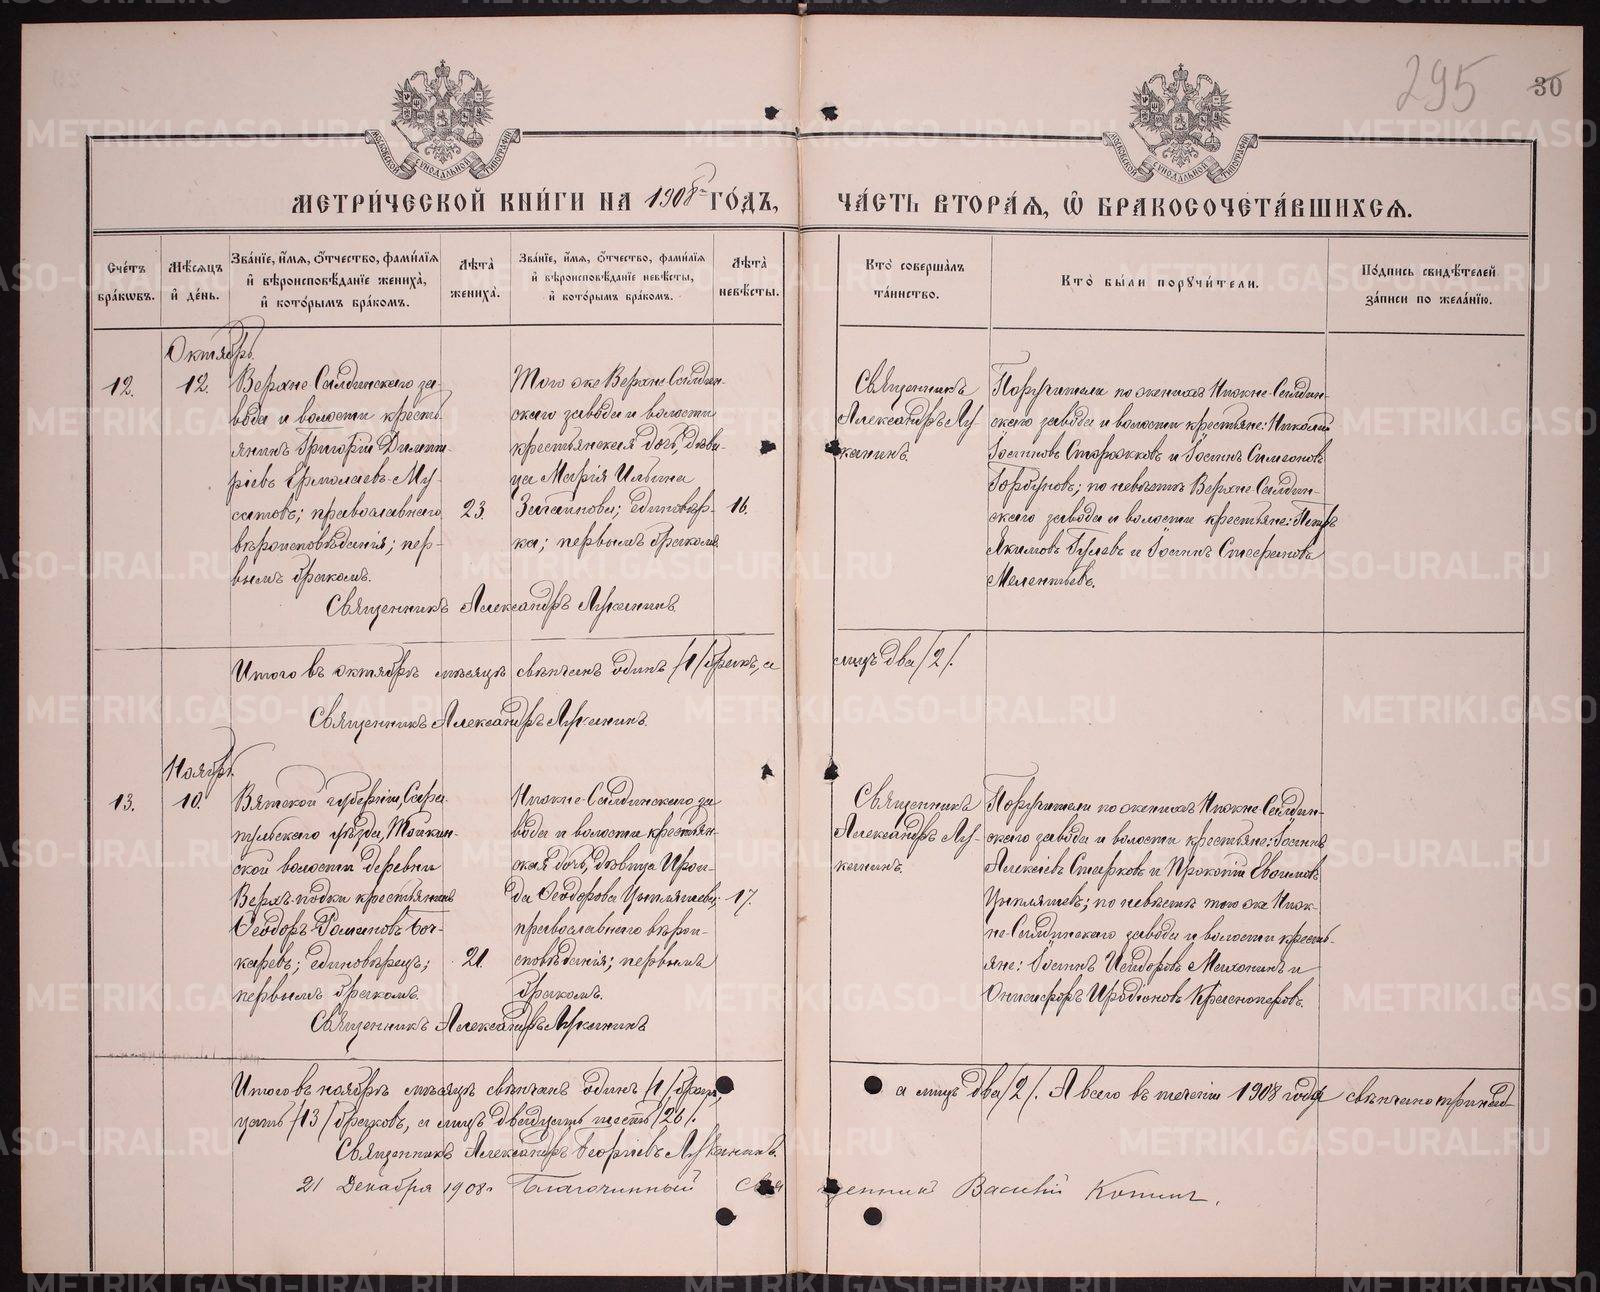 295 30
МОСКОВСКОЙ СѴНОДАЛЬНОЙ ТИПОГРАФІИ
МОСКОВСКОЙ СѴНОДАЛЬНОЙ ТИПОГРАФІИ
МЕТРИ́ЧЕСКОЙ КНИ́ГИ НА 1908 ГО́ДЪ,
ЧА́СТЬ ВТОРА́Я, Ѽ БРАКОСОЧЕТА́ВШИХСЯ.
Сче́тъ бра́кѡвъ.
Мѣ́сяцъ и҆ де́нь.
Зва́нїе, и҆́мя, ѻ҆́тчество, фами́лїя и҆ вѣроисповѣ́данїе жениха̀, и҆ кото́рымъ бра́комъ.
Лѣ́та̀ жениха̀.
Зва́нїе, и҆́мя, ѻ҆́тчество, фами́лїя и҆ вѣроисповѣ́данїе невѣ́сты, и҆ кото́рымъ бра́комъ.
Лѣ́та̀ невѣ́сты.
Кто̀ соверша́лъ та́инство.
Кто̀ бы́ли порꙋчи́тели.
По́дпись свидѣ́телей за́писи по жела́нїю.
Октябрь.
12.
12.
Верхне-Салдинскаго за-
вода и волости кресть-
янинъ Григорій Димит-
ріевъ Ермолаевъ-Му-
сатовъ; православнаго
вѣроисповѣданія; пер-
вымъ бракомъ.
23.
Того же Верхне-Салдин-
скаго завода и волости
крестьянская дочь, дѣви-
ца Марія Ильина
Загайнова; единовѣр-
ка; первымъ бракомъ.
16.
Священникъ
Александръ Лу-
канинъ.
Поручители по женихѣ Нижне-Салдин-
скаго завода и волости крестьяне: Николай
Іоанновъ Старжковъ и Іоаннъ Симеоновъ
Горбуновъ; по невѣстѣ Верхне-Салдин-
скаго завода и волости крестьяне: Петръ
Якимовъ Гулевъ и Іоаннъ Стефановъ
Мелентьевъ.
Священникъ Александръ Луканинъ.
Итого въ октябрѣ мѣсяцѣ свѣнчанъ одинъ /1/ бракъ, а
лицъ два /2/.
Священникъ Александръ Луканинъ.
Ноябрь.
13.
10.
Вятской губерніи, Сара-
пульскаго уѣзда,
ской волости деревни
Верхъ- крестьянинъ
Ѳеодоръ Романовъ Боч-
каревъ; единовѣрецъ;
первымъ бракомъ.
21.
Нижне-Салдинскаго за-
вода и волости крестьян-
ская дочь, дѣвица Ираи-
да Ѳеодорова Цыпляшева;
православнаго вѣрои-
сповѣданія; первымъ
бракомъ.
17.
Священникъ
Александръ Лу-
канинъ.
Поручители по женихѣ Нижне-Салдин-
скаго завода и волости крестьяне: Іоаннъ
Алексіевъ Старковъ и Прокопій Евѳимовъ
Цыпляшевъ; по невѣстѣ того же Ниж-
не-Салдинскаго завода и волости кресть-
яне: Іоаннъ Исидоровъ Махонинъ и
Онисифоръ Иродіоновъ Красноперовъ.
Священникъ Александръ Луканинъ
Итого въ ноябрѣ мѣсяцѣ свѣнчанъ одинъ /1/ бракъ,
а лицъ два /2/. А всего въ теченіи 1908 года свѣнчано тринад-
цать /13/ браковъ, а лицъ двадцать шесть /26/.
Священникъ Александръ Георгіевъ Луканинъ.
21 Декабря 1908 г. Благочинный Священникъ Василій
METRIKI.GASO-URAL.RU